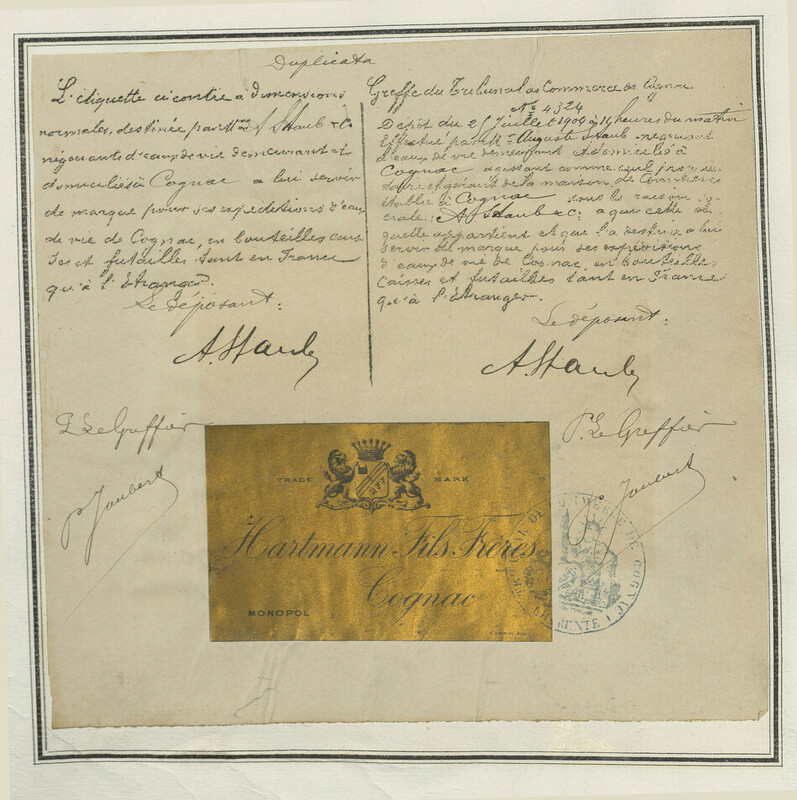 Duplicata
L'étiquette ci contre à dimensions
normales, destinée par A. Staub & Cie
négociants d'eaux de vie demeurant et
domiciliés à Cognac a lui servir
de marque pour ses expéditions d'eaux
de vie de Cognac, en bouteilles cais
ses et futailles tant en France
qu'à l'Etranger.
Le déposant:
A. Staub
Greffe du Tribunal de Commerce de Cognac
No 4324
Dépôt du 25 Juillet 1904 à 11 heures du matin
Effectué par Mr Auguste Staub négociant
d'eaux de vie demeurant et domicilié à
Cognac agissant comme seul proprié
taire et gérant de la maison de Commerce
établie à Cognac sous la raison so
ciale: A. Staub & C. à qui cette éti
quette appartient et que l'a destinée à lui
servir de marque pour ses expéditions
d'eaux de vie de Cognac, en bouteilles
caisses et futailles tant en France
qu'à l'Etranger.
Le déposant:
A. Staub
P. Le Greffier
P. Joubert
P. Le Greffier
P. Joubert
TRADE MARK
HFF
Hartmann Fils Frères
Cognac
MONOPOL
TRIBUNAL DE COMMERCE DE COGNAC
CHARENTE